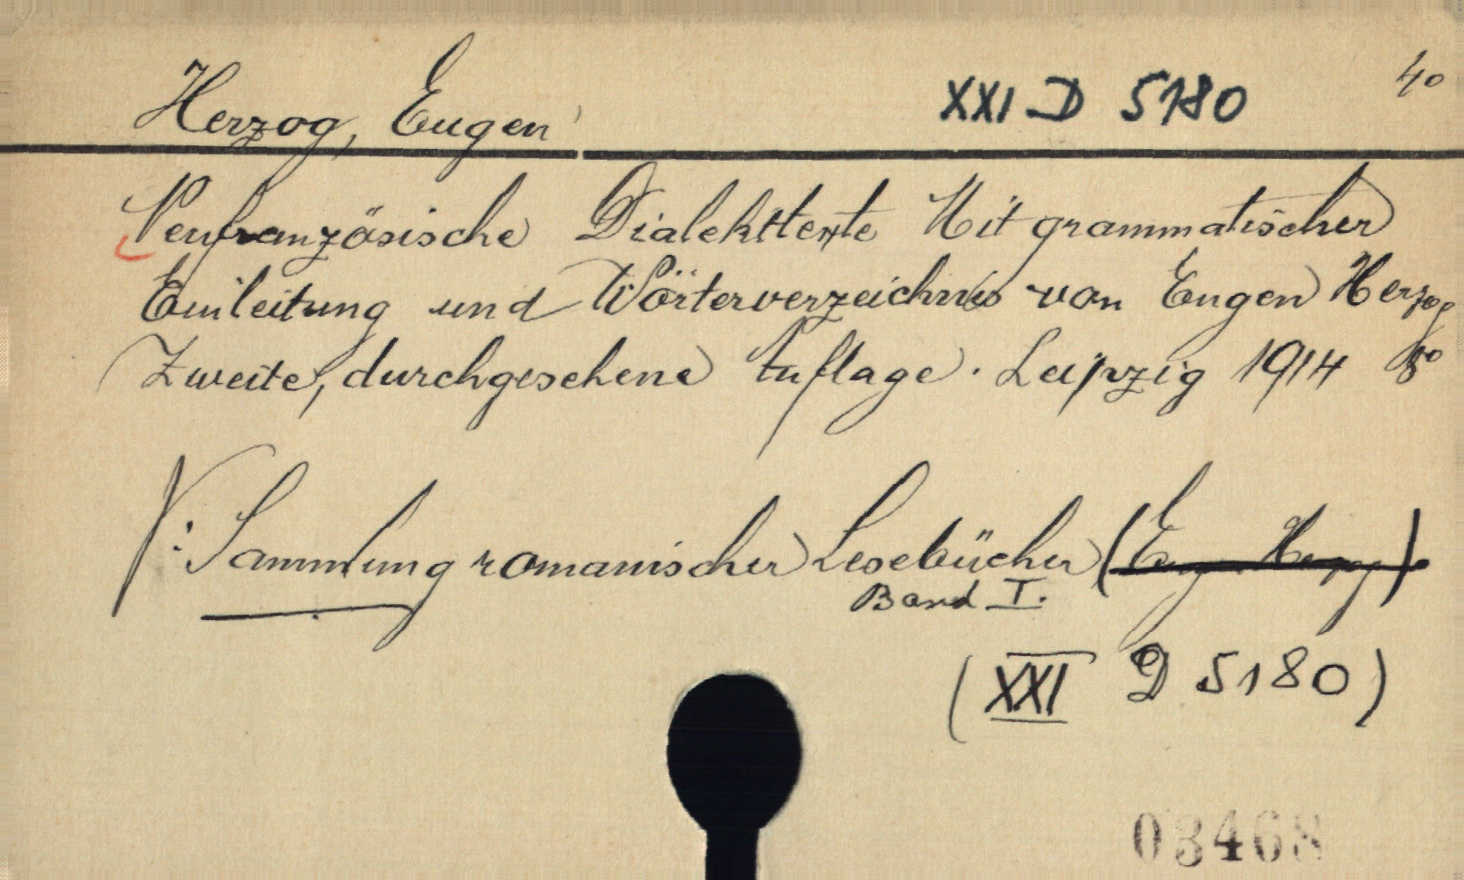 Herzog, Eugen XXI D 5180 40
Neufranzösische Dialekttexte Mit grammatischer
Einleitung und Wörterverzeichnis von Eugen Herzog
Zweite, durchgesehene Auflage. Leipzig 1914 8o
V: Sammlung romanischer Lesebücher (Eugen Herzog)
Band I.
(XXI D 5180)
03468